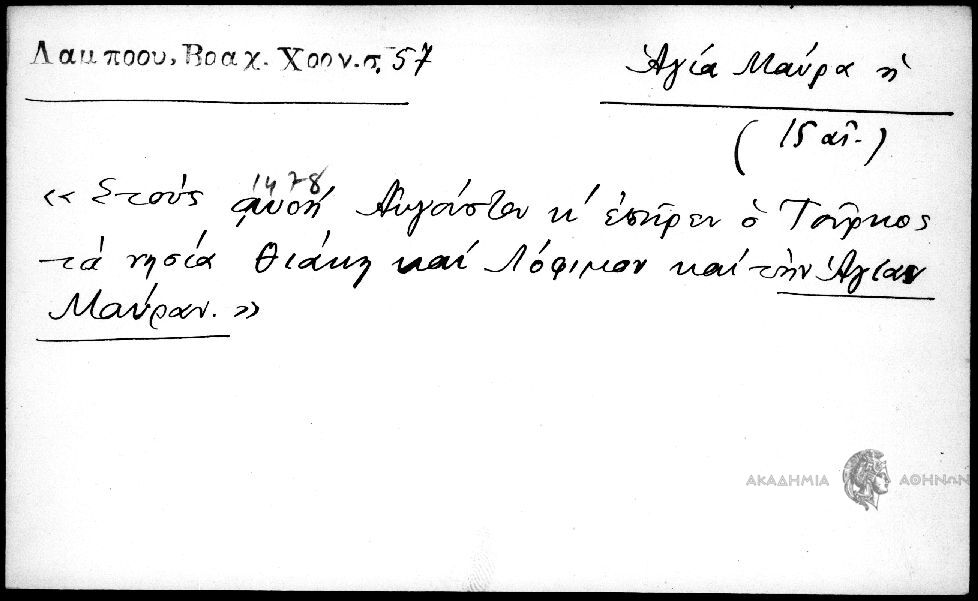 Λαμπρου, Βραχ. Χρον. σ. 57
Ἁγία Μαύρα ἡ
(15 αἰ.)
1478
«Στοὺς ͵αυοή Αὐγούστου κ' ἐπῆρεν ὁ Τοῦρκος
τὰ νησία Θιάκη καὶ Λόφιμον καὶ τὴν Ἁγίαν
Μαύραν.»
ΑΚΑΔΗΜΙΑ ΑΘΗΝΩΝ